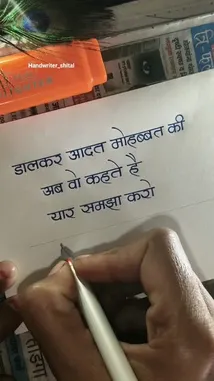 Handwriter_shital
डालकर आदत मोहब्बत की
अब वो कहते है
यार समझा करो